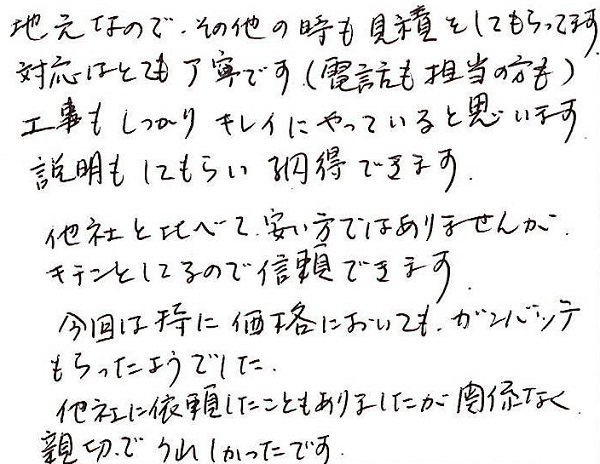 地元なので、その他の時も見積をしてもらってます
対応はとても丁寧です(電話も担当の方も)
工事もしっかりキレイにやっていると思います
説明もしてもらい納得できます。
他社と比べて、安い方ではありませんが、
キチンとしてるので信頼できます。
今回は特に価格においても、ガンバッテ
もらったようでした。
他社に依頼したこともありましたが関係なく
親切でうれしかったです。